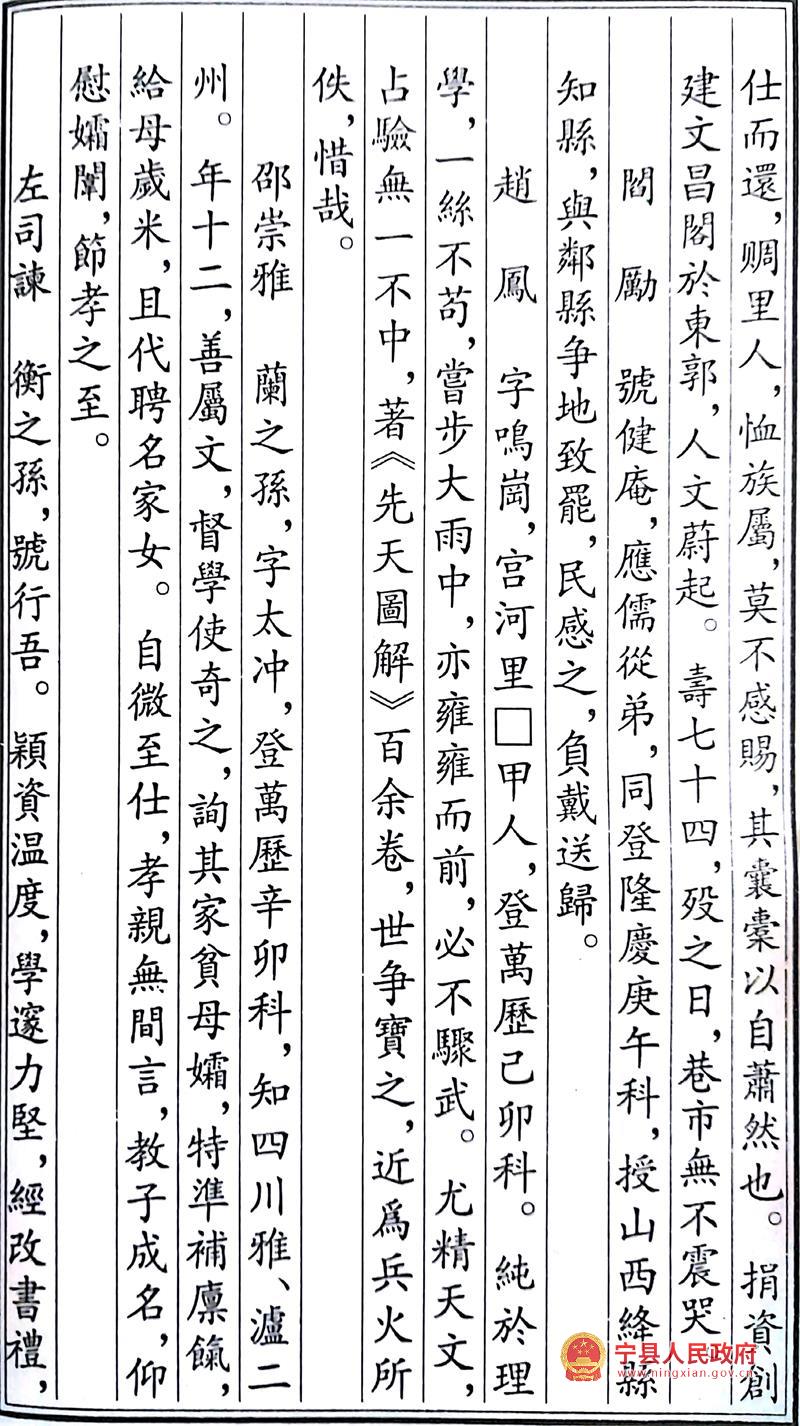 仕而還，赒里人，恤族屬，莫不感賜，其囊橐以自蕭然也。捐資創
建文昌閣於東郭，人文蔚起。壽七十四，歿之日，巷市無不震哭。
閻　勵　號健庵，應儒從弟，同登隆慶庚午科，授山西絳縣
知縣，與鄰縣争地致罷，民感之，負戴送歸。
趙　鳳　字鳴崗，宫河里□甲人，登萬歷己卯科。純於理
學，一絲不苟，嘗步大雨中，亦雍雍而前，必不驟武。尤精天文，
占驗無一不中，著《先天圖解》百余卷，世争寶之，近爲兵火所
佚，惜哉。
邵崇雅　蘭之孫，字太冲，登萬歷辛卯科，知四川雅、瀘二
州。年十二，善屬文，督學使奇之，詢其家貧母孀，特準補廪餼，
給母歲米，且代聘名家女。自微至仕，孝親無間言，教子成名，仰
慰孀闈，節孝之至。
左司諫　衡之孫，號行吾。穎資温度，學邃力堅，經改書禮，
宁县人民政府
www.ningxian.gov.cn